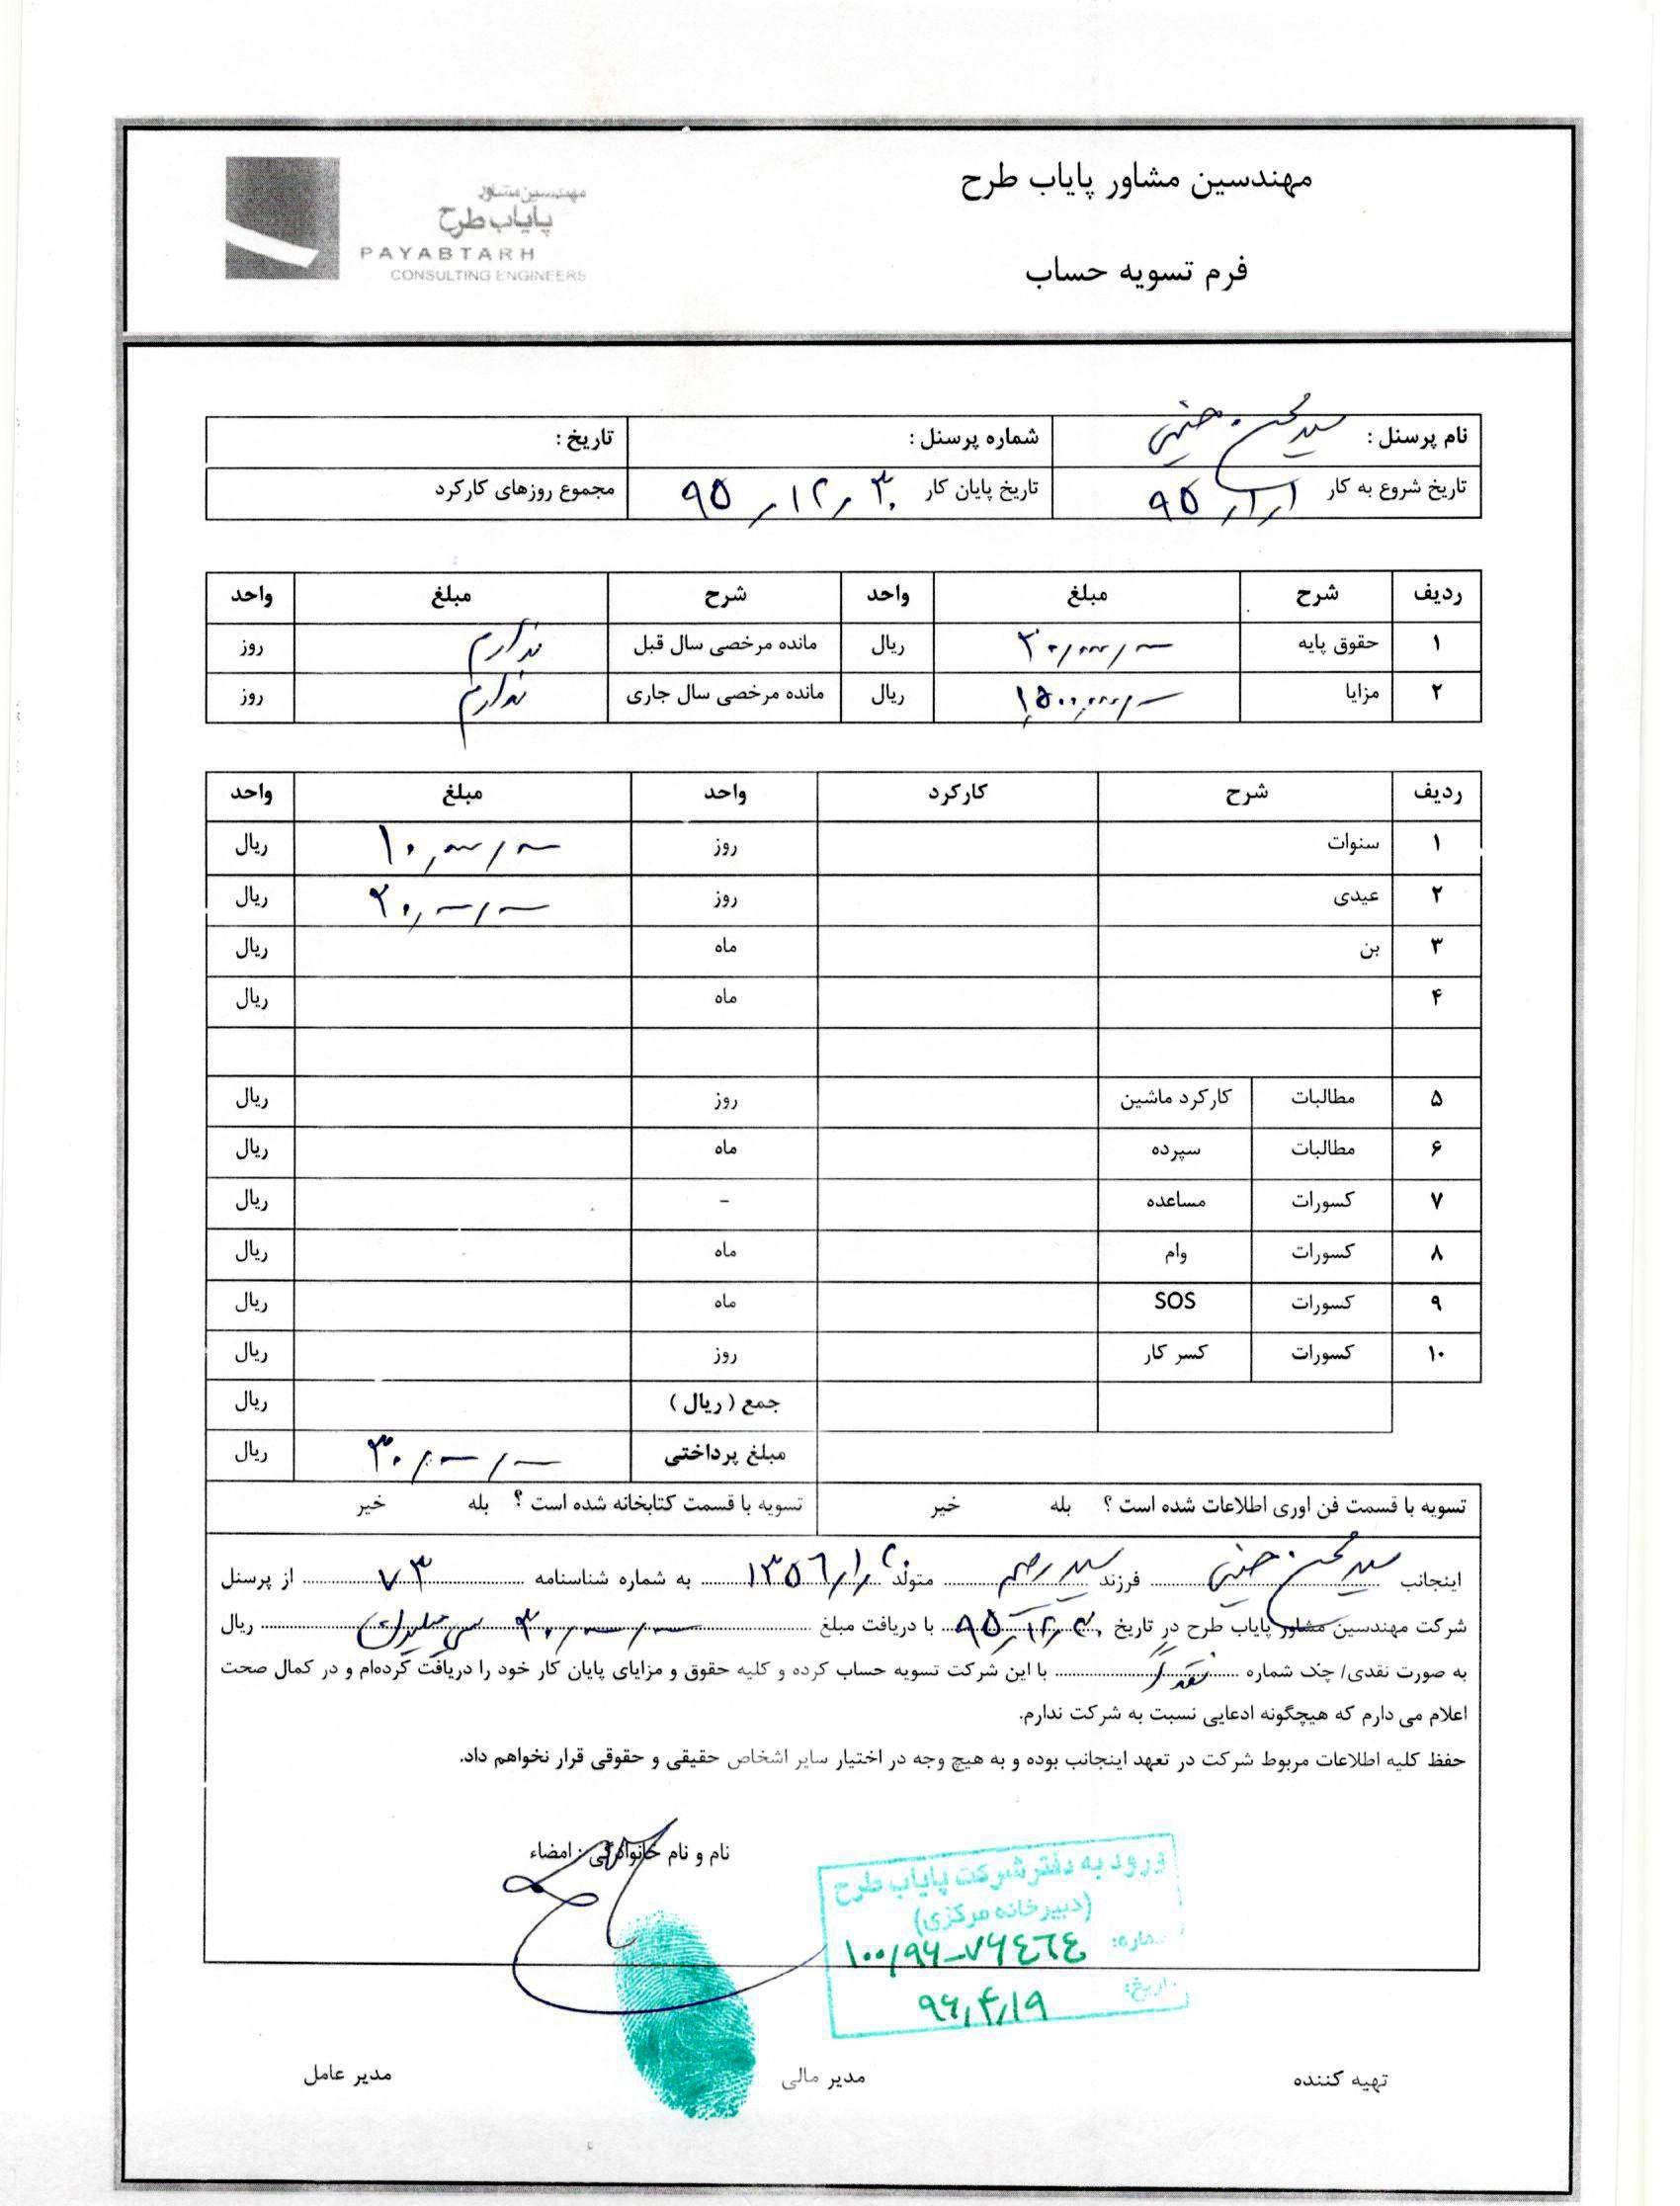 مهندسین مشاور پایاب طرح
فرم تسویه حساب
مهندسین مشاور
پایاب طرح
PAYABTARH
CONSULTING ENGINEERS
نام پرسنل : سید محسن شماره پرسنل : تاریخ :
تاریخ شروع به کار ۹۵/۱/۱ تاریخ پایان کار ۹۵/۱۲/۳۰ مجموع روزهای کارکرد
ردیف شرح مبلغ واحد شرح مبلغ واحد
۱ حقوق پایه ریال مانده مرخصی سال قبل ندارم روز
۲ مزایا ریال مانده مرخصی سال جاری ندارم روز
ردیف شرح کارکرد واحد مبلغ واحد
۱ سنوات روز ۱۰٫۰۰۰٫۰۰۰ ریال
۲ عیدی روز ۲۰٫۰۰۰٫۰۰۰ ریال
۳ بن ماه ریال
۴ ماه ریال
۵ مطالبات کارکرد ماشین روز ریال
۶ مطالبات سپرده ماه ریال
۷ کسورات مساعده - ریال
۸ کسورات وام ماه ریال
۹ کسورات SOS ماه ریال
۱۰ کسورات کسر کار روز ریال
جمع ( ریال ) ریال
مبلغ پرداختی ۳۰٫۰۰۰٫۰۰۰ ریال
تسویه با قسمت فن اوری اطلاعات شده است ؟ بله خیر تسویه با قسمت کتابخانه شده است ؟ بله خیر
اینجانب سید محسن فرزند سید متولد ۱۳۵۶ به شماره شناسنامه ۷۳ از پرسنل
شرکت مهندسین مشاور پایاب طرح در تاریخ ۹۵/۱۲/۳۰ با دریافت مبلغ ۳۰٫۰۰۰٫۰۰۰ سی میلیون ریال
به صورت نقدی/ چک شماره نقداً با این شرکت تسویه حساب کرده و کلیه حقوق و مزایای پایان کار خود را دریافت کرده‌ام و در کمال صحت
اعلام می دارم که هیچگونه ادعایی نسبت به شرکت ندارم.
حفظ کلیه اطلاعات مربوط شرکت در تعهد اینجانب بوده و به هیچ وجه در اختیار سایر اشخاص حقیقی و حقوقی قرار نخواهم داد.
نام و نام خانوادگی : امضاء
ورود به دفتر شرکت پایاب طرح
(دبیرخانه مرکزی)
شماره: ۱۰۰/۹۶-۷۶۴۶۴
تاریخ: ۹۶/۴/۱۹
تهیه کننده مدیر مالی مدیر عامل